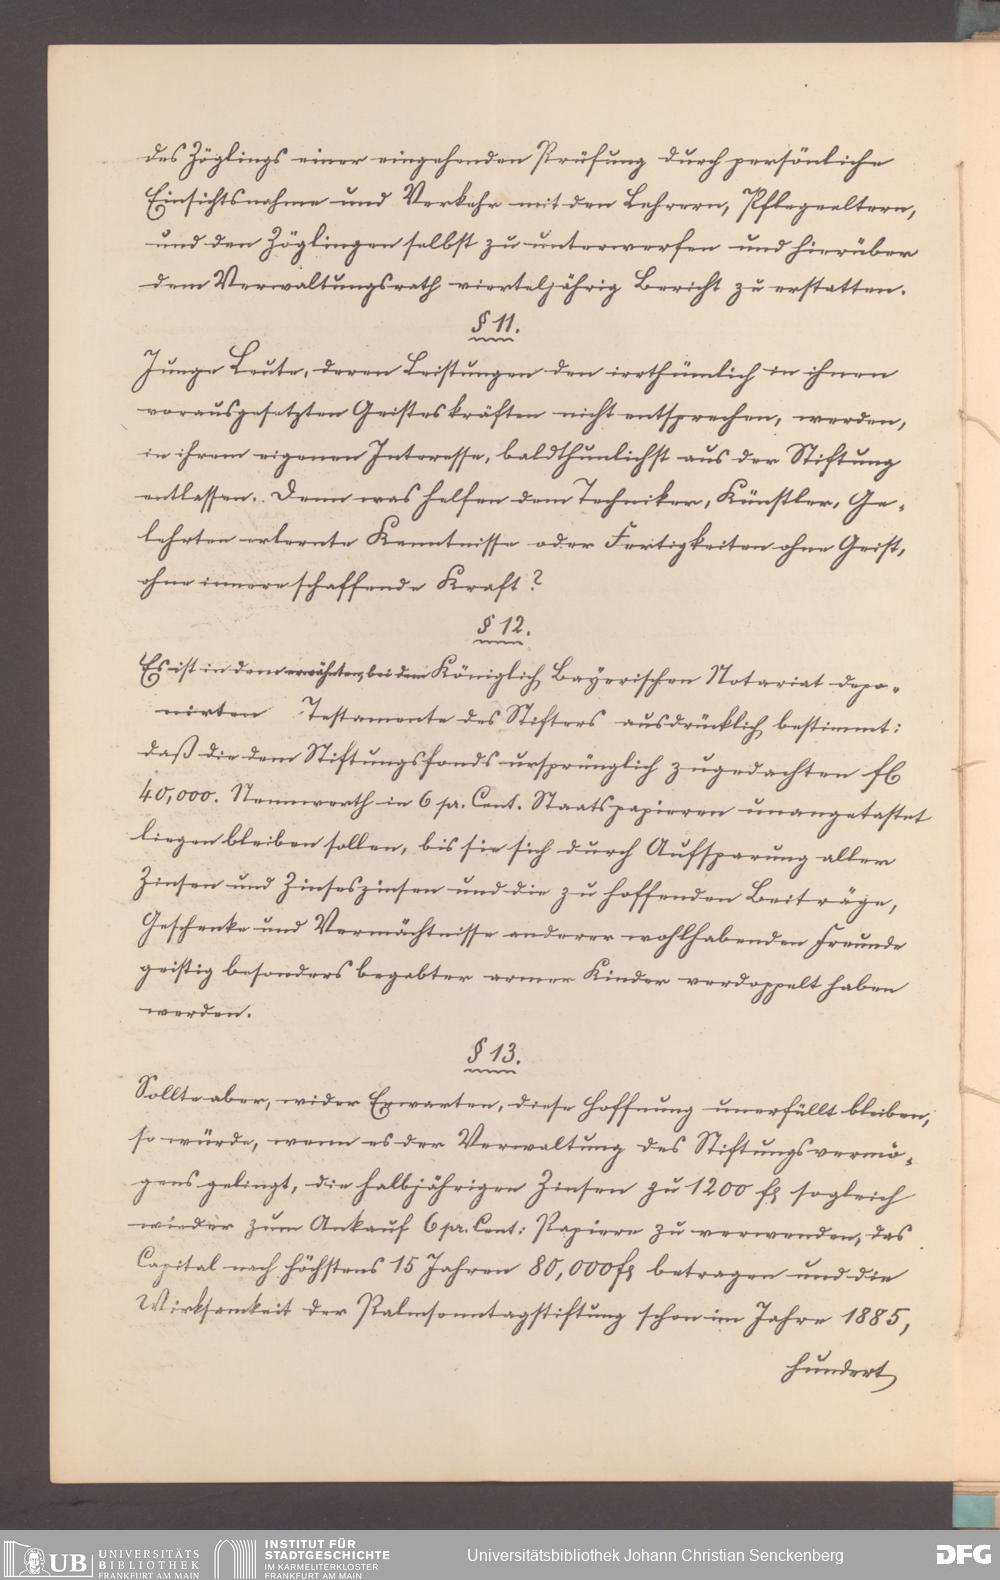 des Zöglings einer eingehenden Prüfung durch persönliche
Einsichtsnahme und Verkehr mit den Lehrern, Pflegeeltern,
und den Zöglingen selbst zu unterwerfen und hierüber
dem Verwaltungsrath vierteljährig Bericht zu erstatten.
§ 11.
Junge Leute, deren Leistungen den irrthümlich in ihnen
vorausgesetzten Geisteskräften nicht entsprechen, werden,
in ihrem eigenen Interesse, baldthunlichst aus der Stiftung
entlassen. Denn was helfen dem Techniker, Künstler, Ge-
lehrten erlernte Kenntnisse oder Fertigkeiten ohne Geist,
ohne innere schaffende Kraft?
§ 12.
Es ist in dem erwähnten, bei dem Königlich Bayerischen Notariat depo-
nirten Testamente des Stifters ausdrücklich bestimmt:
daß die dem Stiftungsfonds ursprünglich zugedachten fl
40,000. Nennwerth in 6 pr. Cent. Staatspapieren unangetastet
liegen bleiben sollen, bis sie sich durch Aufsparung aller
Zinsen und Zinseszinsen und die zu hoffenden Beiträge,
Geschenke und Vermächtnisse anderer wohlhabenden Freunde
geistig besonders begabter armer Kinder verdoppelt haben
werden.
§ 13.
Sollte aber, wider Erwarten, diese Hoffnung unerfüllt bleiben,
so würde, wenn es der Verwaltung des Stiftungsvermö-
gens gelingt, die halbjährigen Zinsen zu 1200 fl sogleich
wieder zum Ankauf 6 pr. Cent: Papiere zu verwenden, das
Capital nach höchstens 15 Jahren 80,000 fl betragen und die
Wirksamkeit der Palmsonntagstiftung schon im Jahre 1885,
hundert
UB UNIVERSITÄTS
BIBLIOTHEK
FRANKFURT AM MAIN
INSTITUT FÜR
STADTGESCHICHTE
IM KARMELITERKLOSTER
FRANKFURT AM MAIN
Universitätsbibliothek Johann Christian Senckenberg
DFG